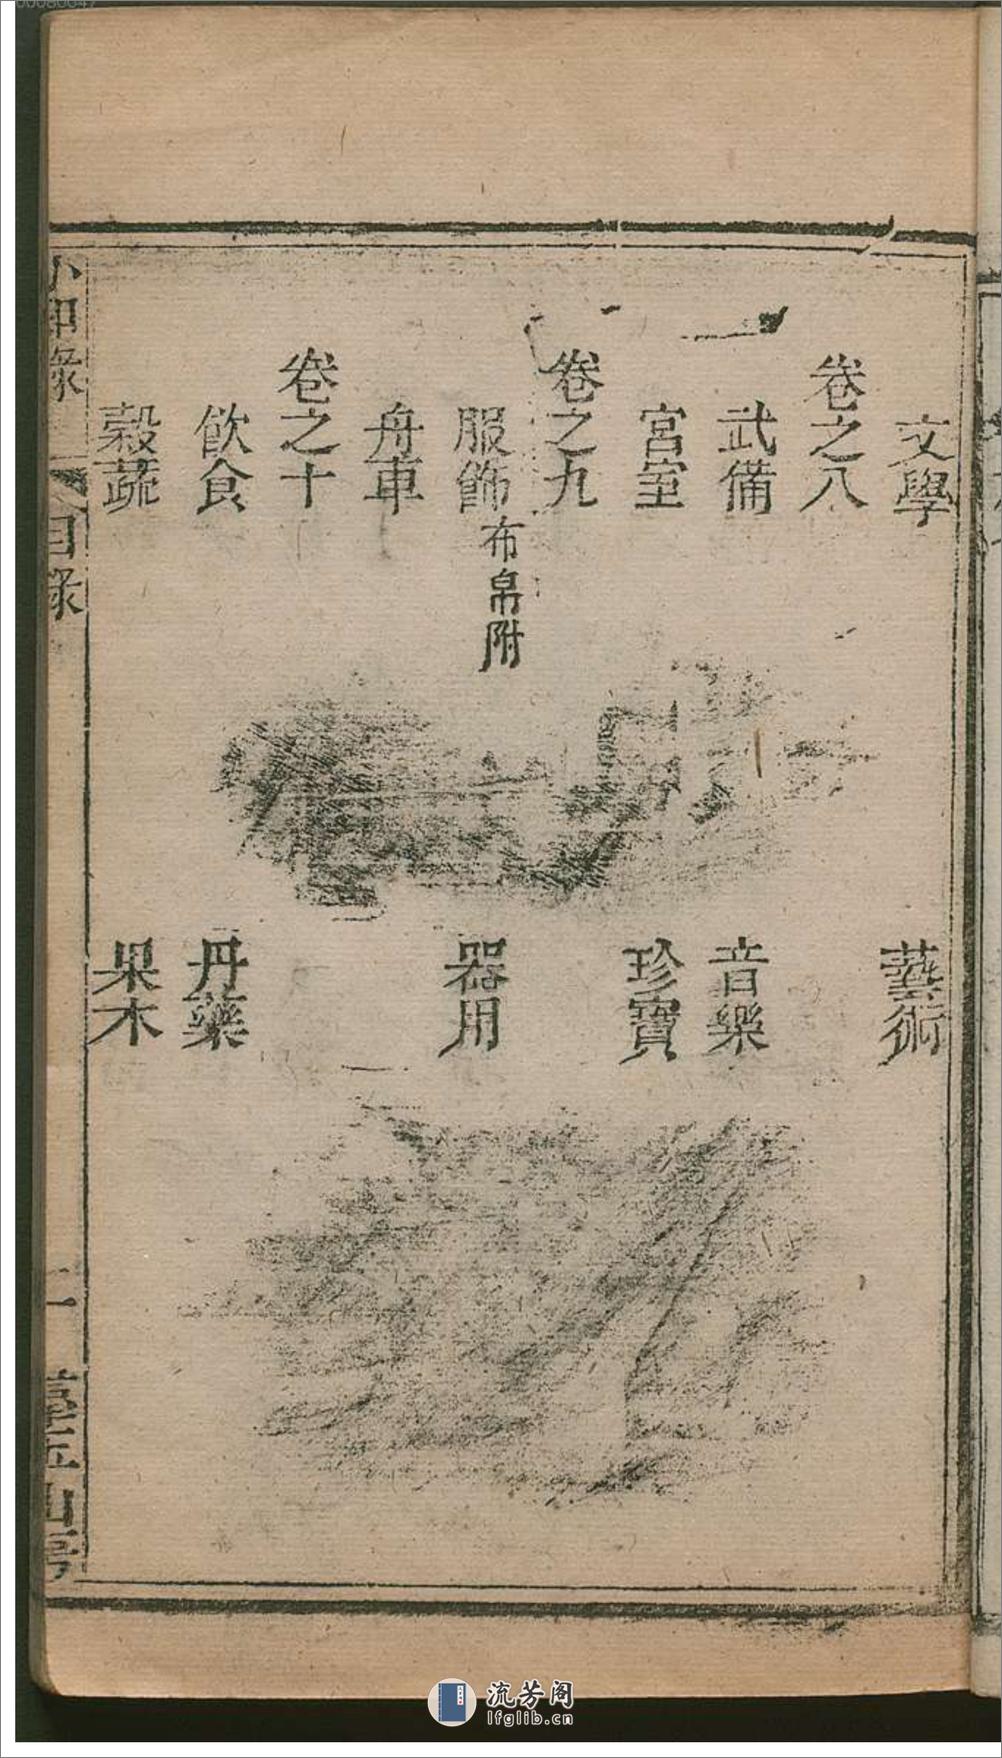 文學 藝術
卷之八
武備 音樂
宮室 珍寶
卷之九
服飾布帛附 器用
舟車
卷之十
飲食 丹藥
穀蔬 果木
小知錄 目錄 二
山房
流芳阁
lfglib.cn